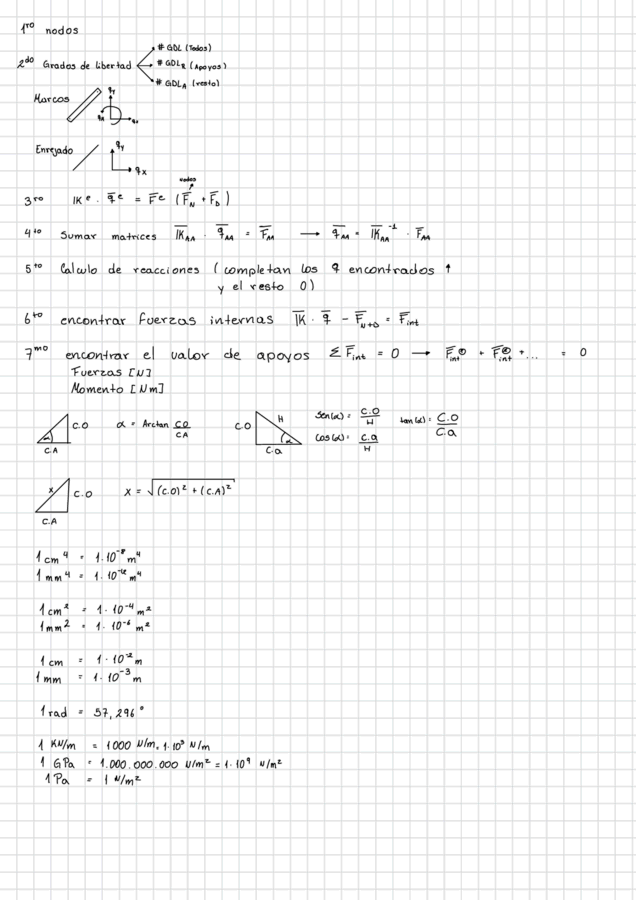 1ro nodos
# GDL (Todos)
2do Grados de libertad # GDL_R (Apoyos)
# GDL_A (resto)
Marcos qy qθ qx
Enrejado qy qx
nodos
3ro IK^e · q̅^e = F̅^e (F̅_N + F̅_D)
4to Sumar matrices I̅K̅_AA · q̅_AA = F̅_AA → q̅_AA = I̅K̅_AA^-1 · F̅_AA
5to Calculo de reacciones (completan los q encontrados ↑
y el resto 0)
6to encontrar fuerzas internas I̅K̅ · q̅ - F̅_N+D = F̅_int
7mo encontrar el valor de apoyos Σ F̅_int = 0 → F̅_int^① + F̅_int^② + ... = 0
Fuerzas [N]
Momento [Nm]
α C.O C.A α = Arctan CO/CA C.O H α C.a Sen(α) = C.O/H tan(α) = C.O/C.a
Cos(α) = C.a/H
x C.O C.A x = √(C.O)² + (C.A)²
1 cm⁴ = 1·10⁻⁸ m⁴
1 mm⁴ = 1·10⁻¹² m⁴
1 cm² = 1·10⁻⁴ m²
1 mm² = 1·10⁻⁶ m²
1 cm = 1·10⁻² m
1 mm = 1·10⁻³ m
1 rad = 57,296°
1 KN/m = 1000 N/m = 1·10³ N/m
1 GPa = 1.000.000.000 N/m² = 1·10⁹ N/m²
1 Pa = 1 N/m²